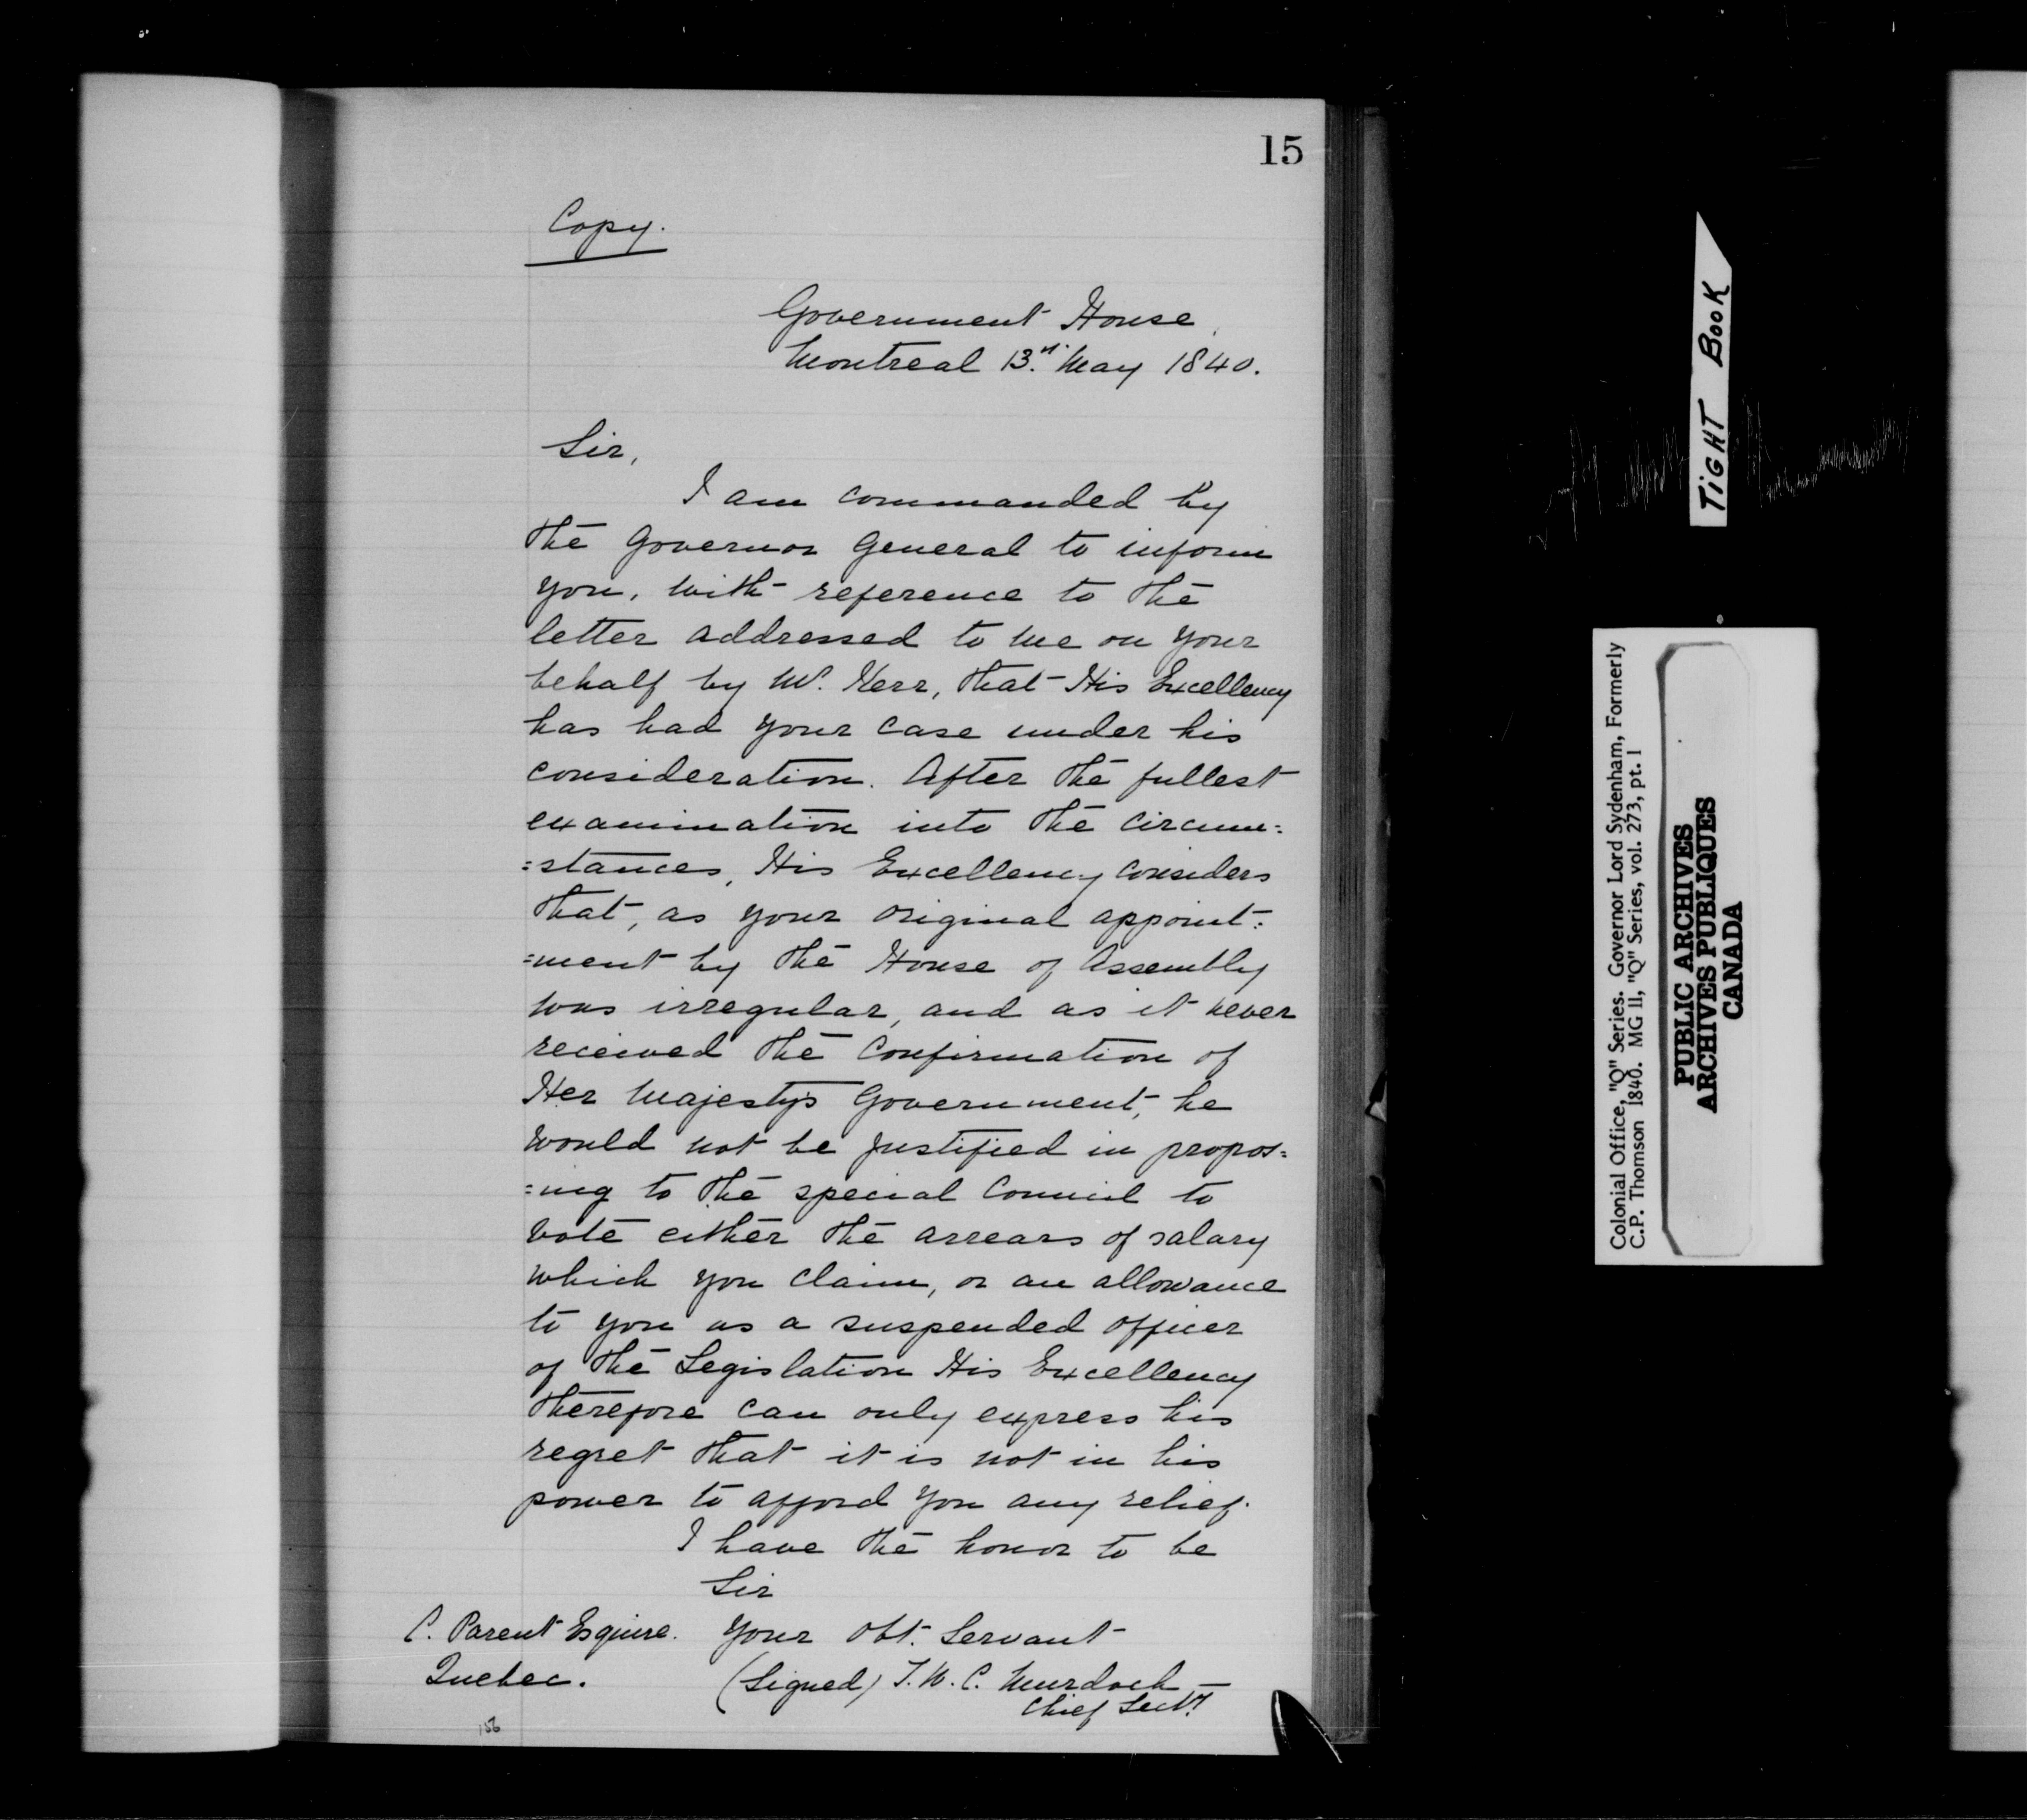 15
Copy.
Government House,
Montreal 13.th May 1840.
Sir,
I am commanded by
the Governor General to inform
you, with reference to the
letter addressed to me on your
behalf by Mr. Kerr, that His Excellency
has had your case under his
consideration. After the fullest
examination into the circum=
=stances, His Excellency considers
that, as your original appoint=
=ment by the House of Assembly
was irregular, and as it never
received the Confirmation of
Her Majesty's Government, he
would not be justified in propos=
=ing to the special Council to
vote either the arrears of salary
which you claim, or an allowance
to you as a suspended officer
of the Legislation His Excellency
therefore can only express his
regret that it is not in his
power to afford you any relief.
I have the honor to be
Sir
Your Obt. Servant
(Signed) T. W. C. Murdoch
Chief Secy.
C. Parent Esquire.
Quebec.
156
TiGHT BOOK
Colonial Office, "Q" Series. Governor Lord Sydenham, Formerly
C.P. Thomson 1840. MG 11, "Q" Series, vol. 273, pt. 1
PUBLIC ARCHIVES
ARCHIVES PUBLIQUES
CANADA